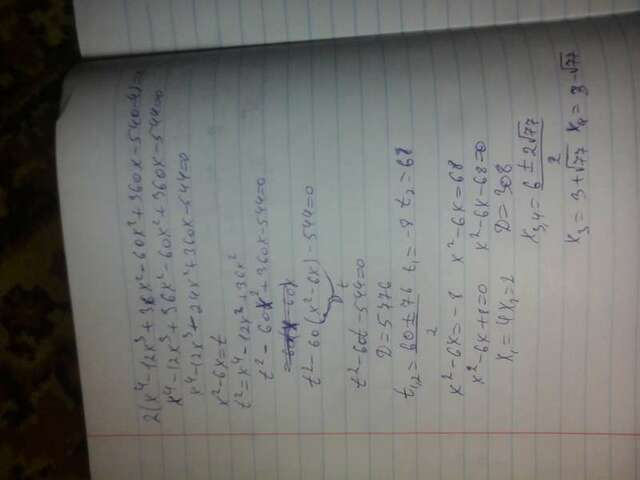 2(x⁴-12x³+36x²-60x²+360x-540-4)=
x⁴-12x³+36x²-60x²+360x-544=0
x⁴-12x³-24x²+360x-544=0
x²-6x=t
t²=x⁴-12x³+36x²
t²-60x²+360x-544=0
t²-60(x²-6x)-544=0
t
t²-60t-544=0
D=5776
t₁,₂=(60±76)/2 t₁=-8 t₂=68
x²-6x=-8 x²-6x=68
x²-6x+8=0 x²-6x-68=0
x₁=4 x₂=2 D=308
x₃,₄=(6±2√77)/2
x₃=3+√77 x₄=3-√77